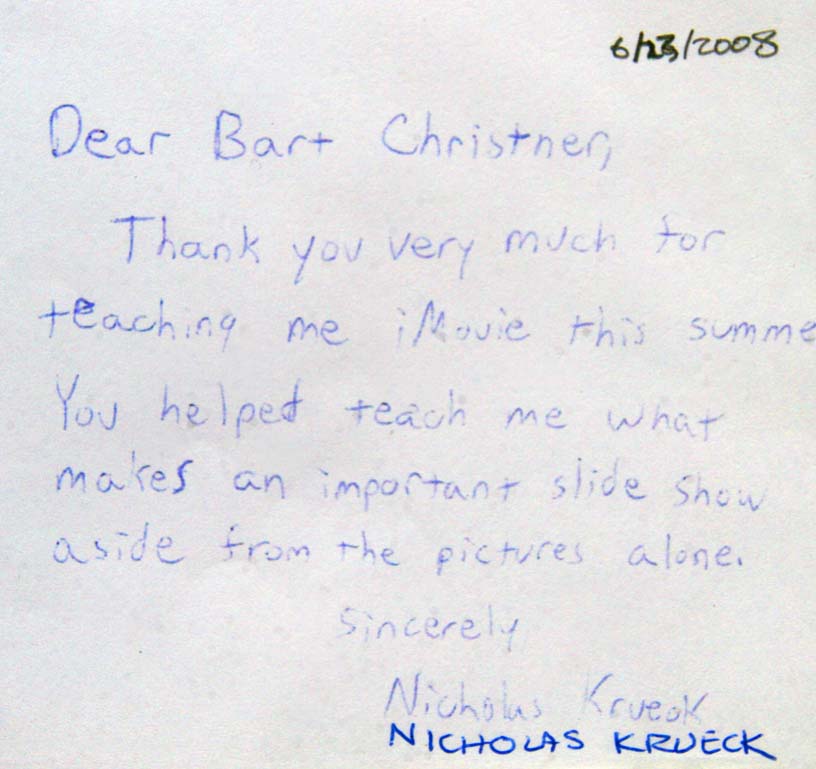 6/23/2008
Dear Bart Christner,
Thank you very much for
teaching me iMovie this summe
You helped teach me what
makes an important slide show
aside from the pictures alone.
Sincerely
Nicholas Krueck
NICHOLAS KRUECK